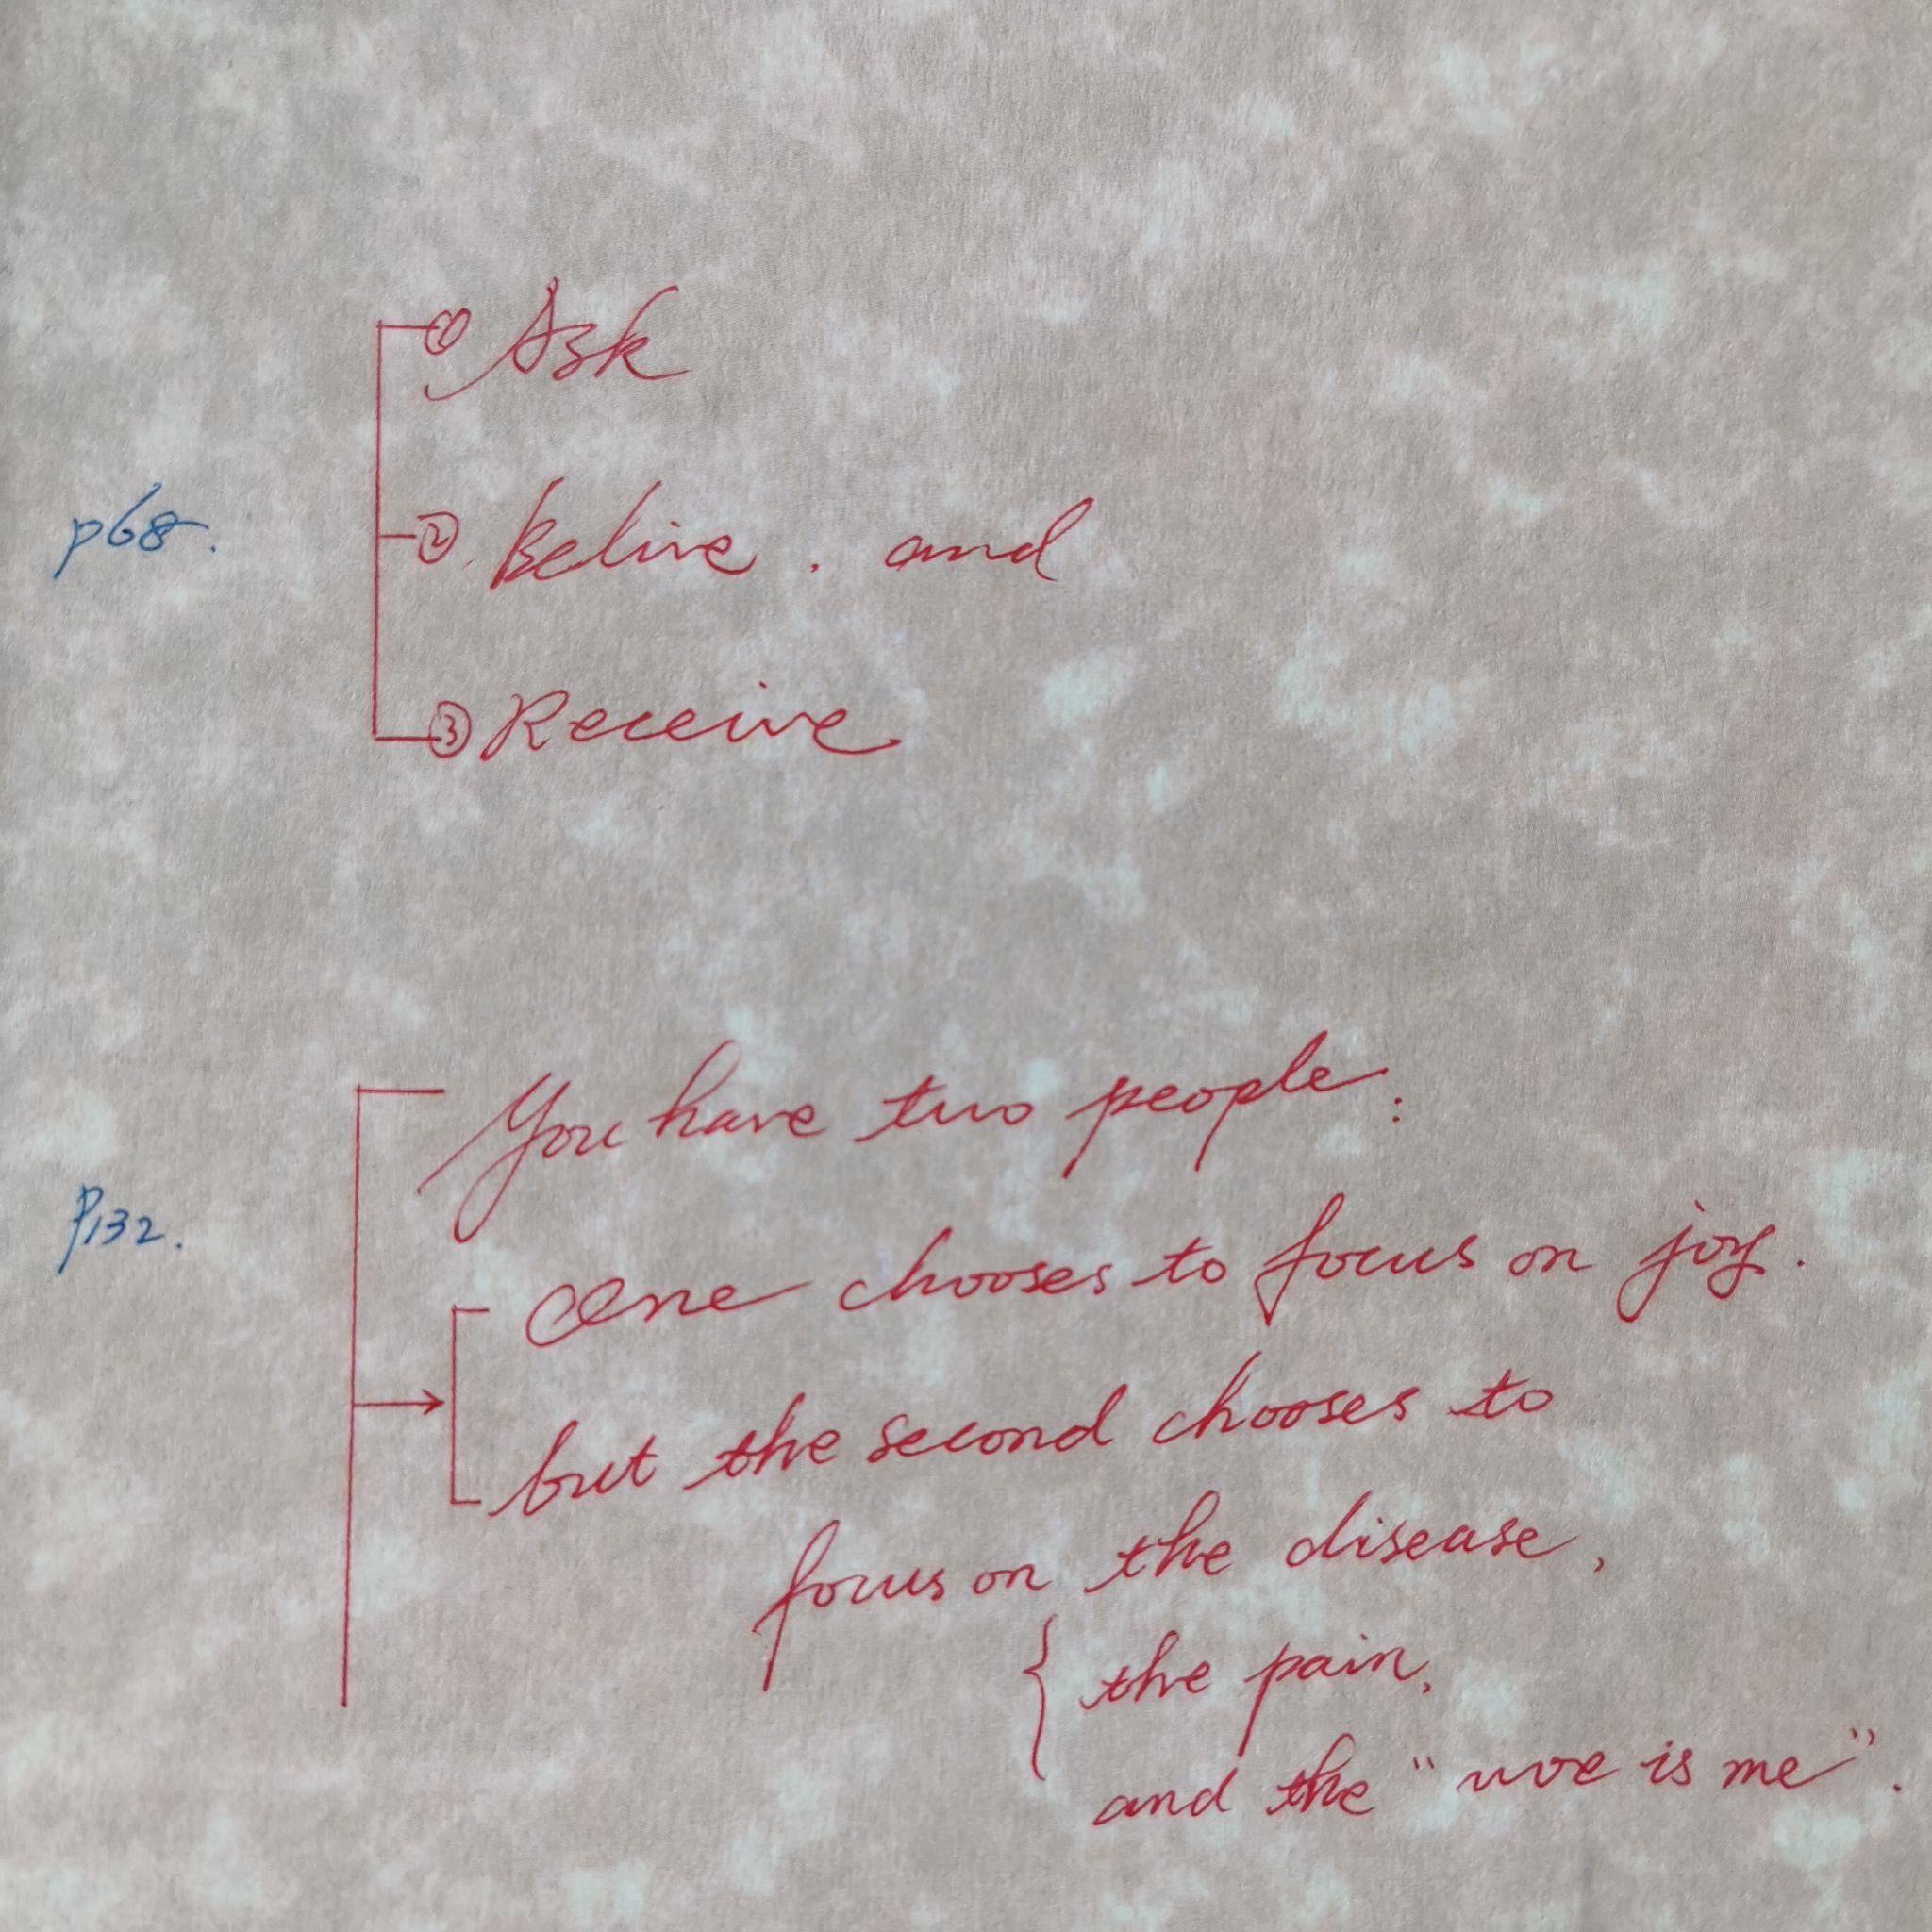 ① Ask
p68.
② . Belive . and
③ Receive
You have two people :
P132.
One chooses to focus on joy .
but the second chooses to
focus on the disease ,
{ the pain,
and the " woe is me " .